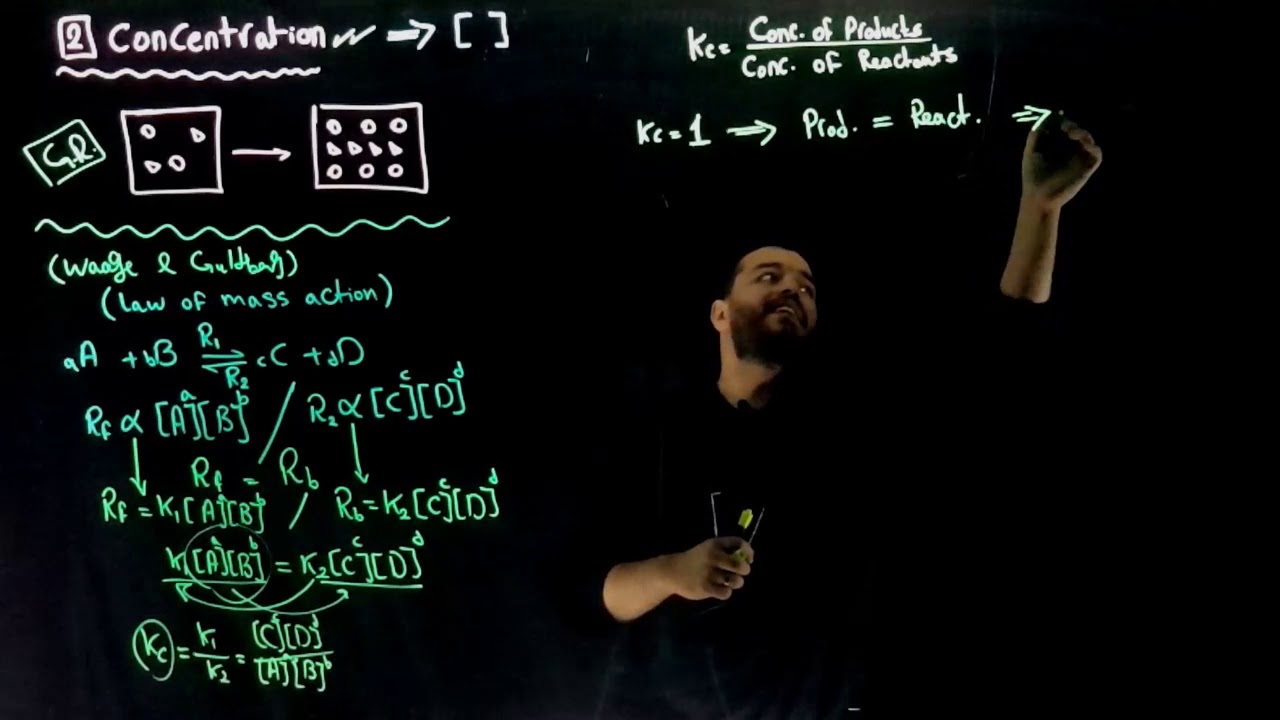 2 Concentration ⇒ [ ]
G.R.
(Waage & Guldbag)
(Law of mass action)
aA + bB ⇌ cC + dD
R₁
R₂
Rf ∝ [A]ᵃ[B]ᵇ / R₂ ∝ [C]ᶜ[D]ᵈ
Rf = Rb
Rf = K₁[A]ᵃ[B]ᵇ / Rb = K₂[C]ᶜ[D]ᵈ
K₁[A]ᵃ[B]ᵇ = K₂[C]ᶜ[D]ᵈ
Kc = K₁/K₂ = [C]ᶜ[D]ᵈ/[A]ᵃ[B]ᵇ
Kc = Conc. of Products / Conc. of Reactants
Kc = 1 ⇒ Prod. = React. ⇒